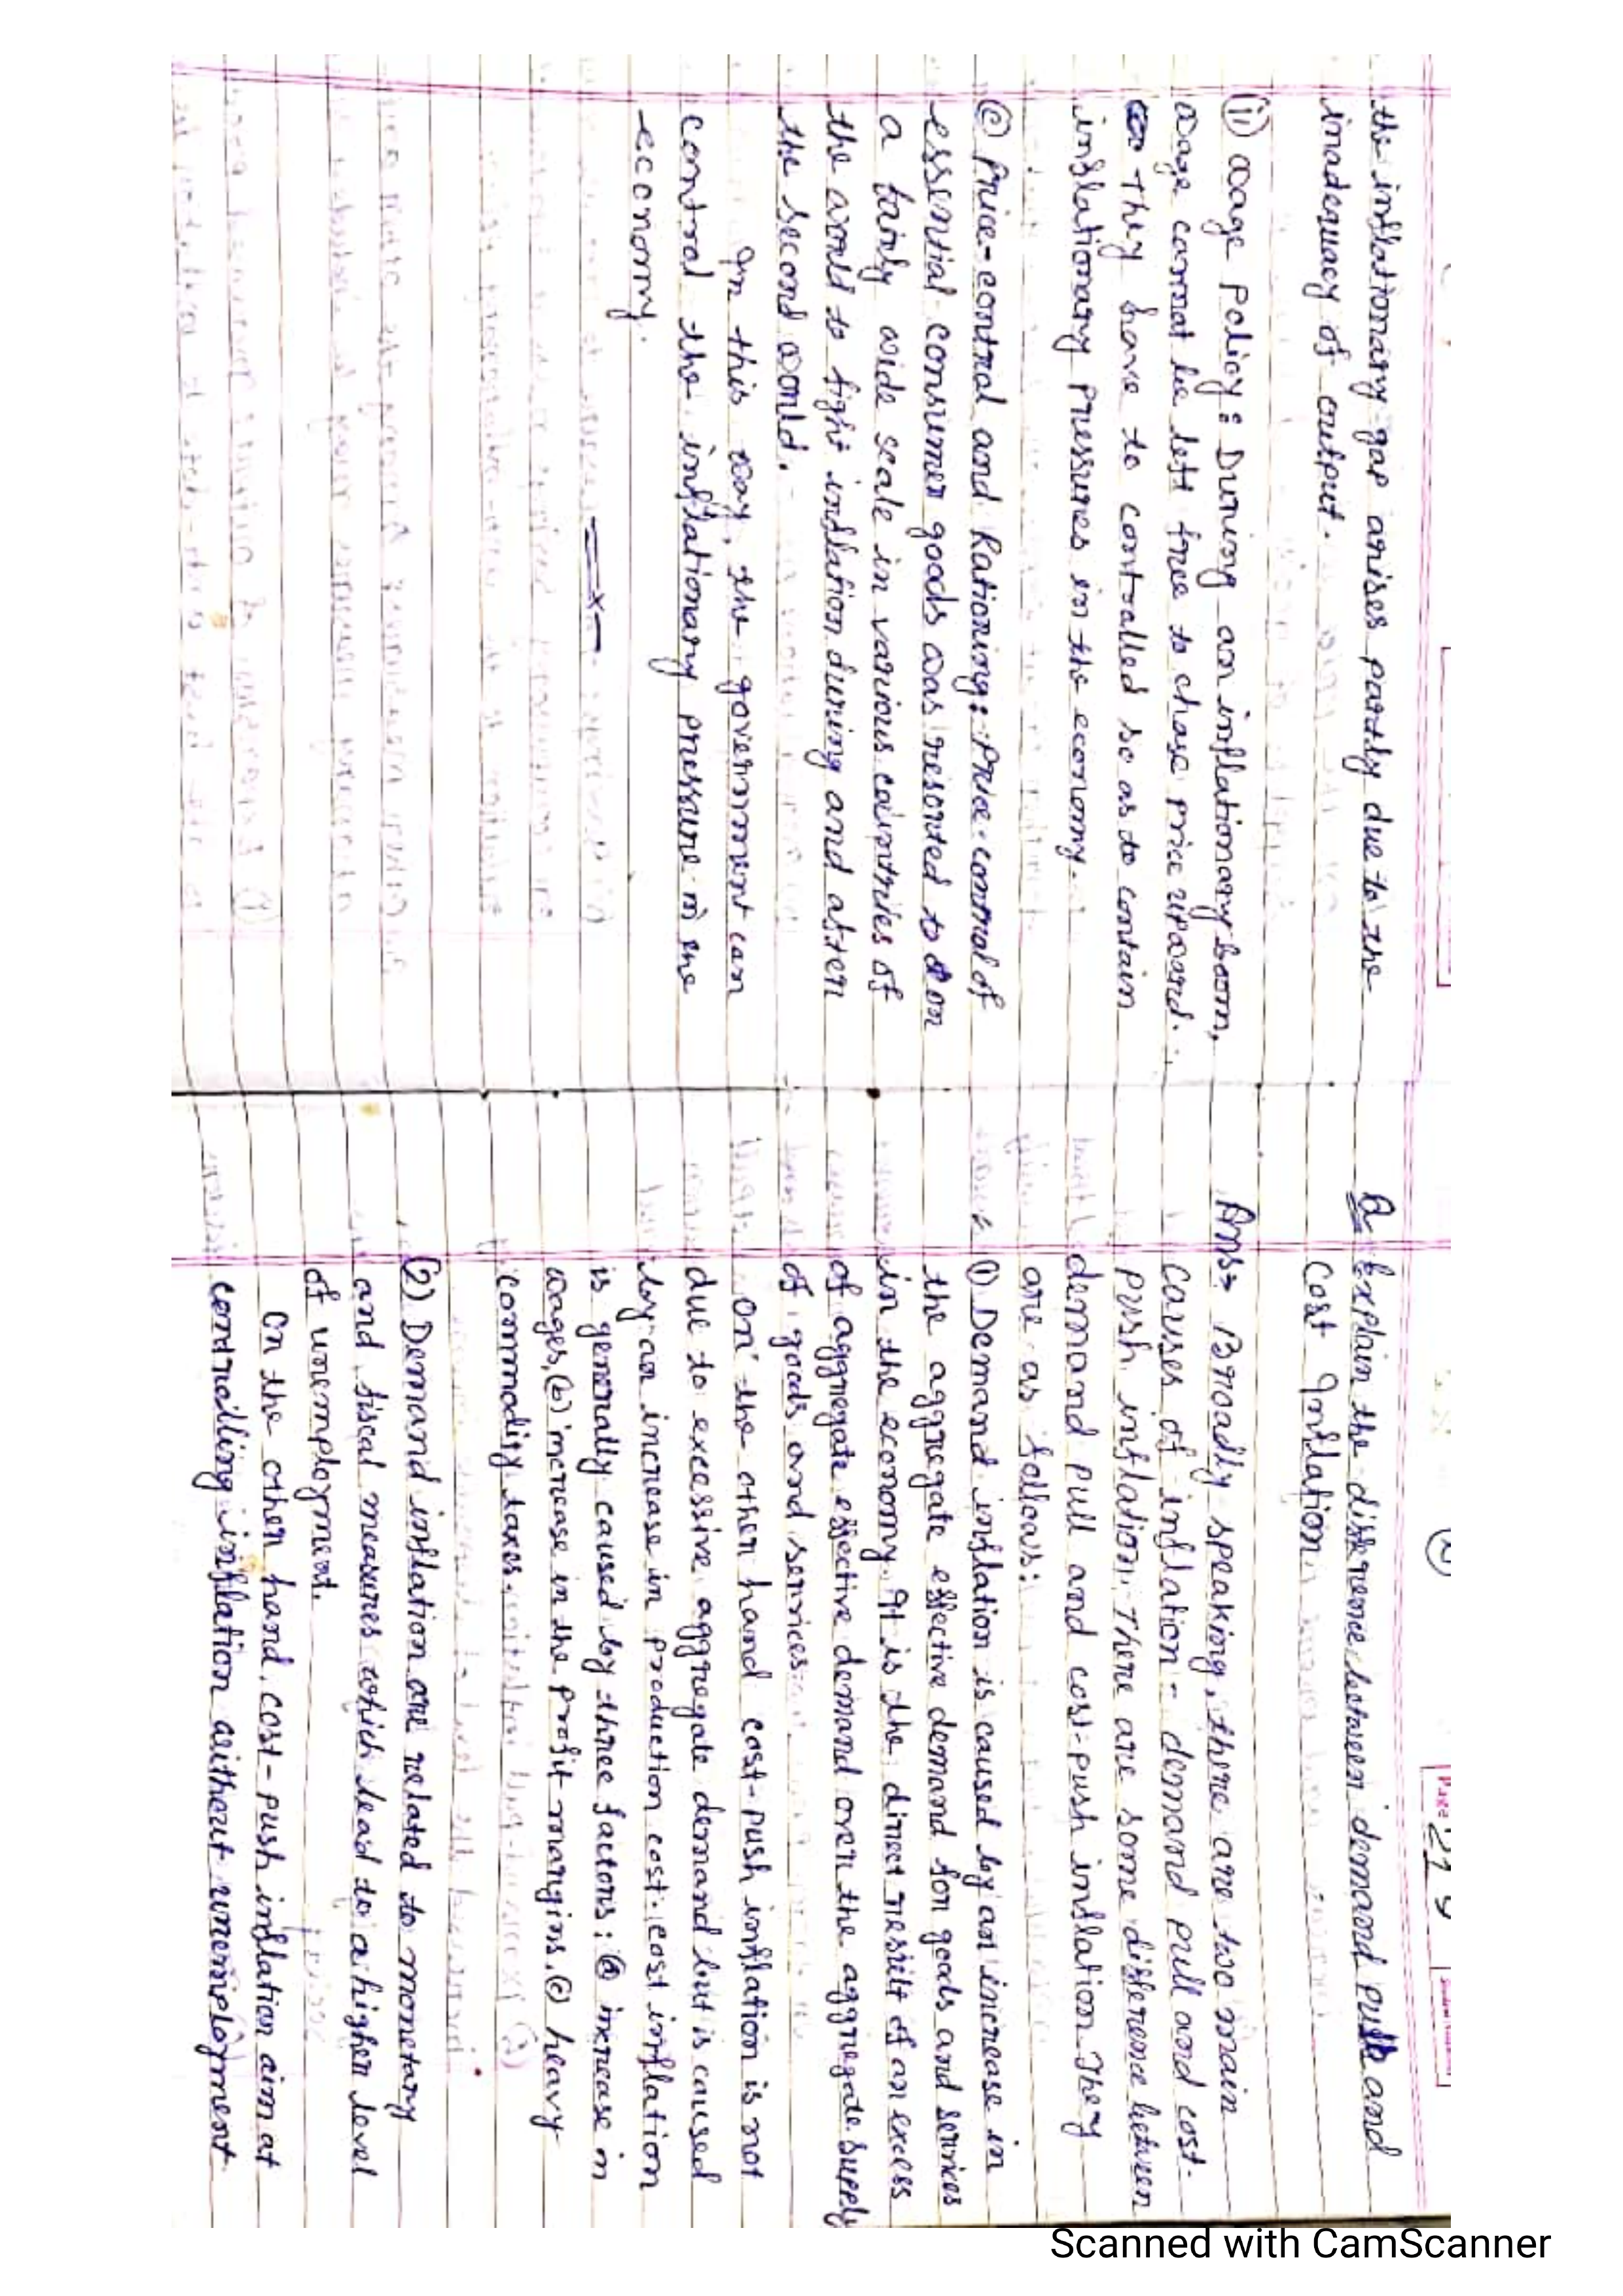 the inflationary gap arises partly due to the
inadequacy of output.
(ii) wage policy: During an inflationary boom,
wage cannot be left free to chase price upward.
They have to controlled so as to contain
inflationary pressures in the economy.
(c) Price-control and Rationing: Price-control of
essential consumer goods was resorted to on
a fairly wide scale in various countries of
the would to fight inflation during and after
the second would.
In this way, the government can
control the inflationary pressure in the
economy.
Page
Q Explain the difference between demand pull and
Cost Inflation.
Ans= Broadly speaking, there are two main
causes of inflation- demand pull and cost-
push inflation. There are some difference between
demand pull and cost-push inflation They
are as follows:
(1) Demand inflation is caused by an increase in
the aggregate effective demand for goods and services
in the economy. It is the direct result of an excess
of aggregate effective demand over the aggregate supply
of goods and services.
On the other hand cost-push inflation is not
due to excessive aggregate demand but is caused
by an increase in production cost. cost inflation
is generally caused by three factors: (a) increase in
wages, (b) increase in the profit-margins. (c) heavy
commodity taxes.
(2) Demand inflation are related to monetary
and fiscal measures which lead to a higher level
of unemployment.
On the other hand, cost-push inflation aim at
controlling inflation without unemployment
Scanned with CamScanner